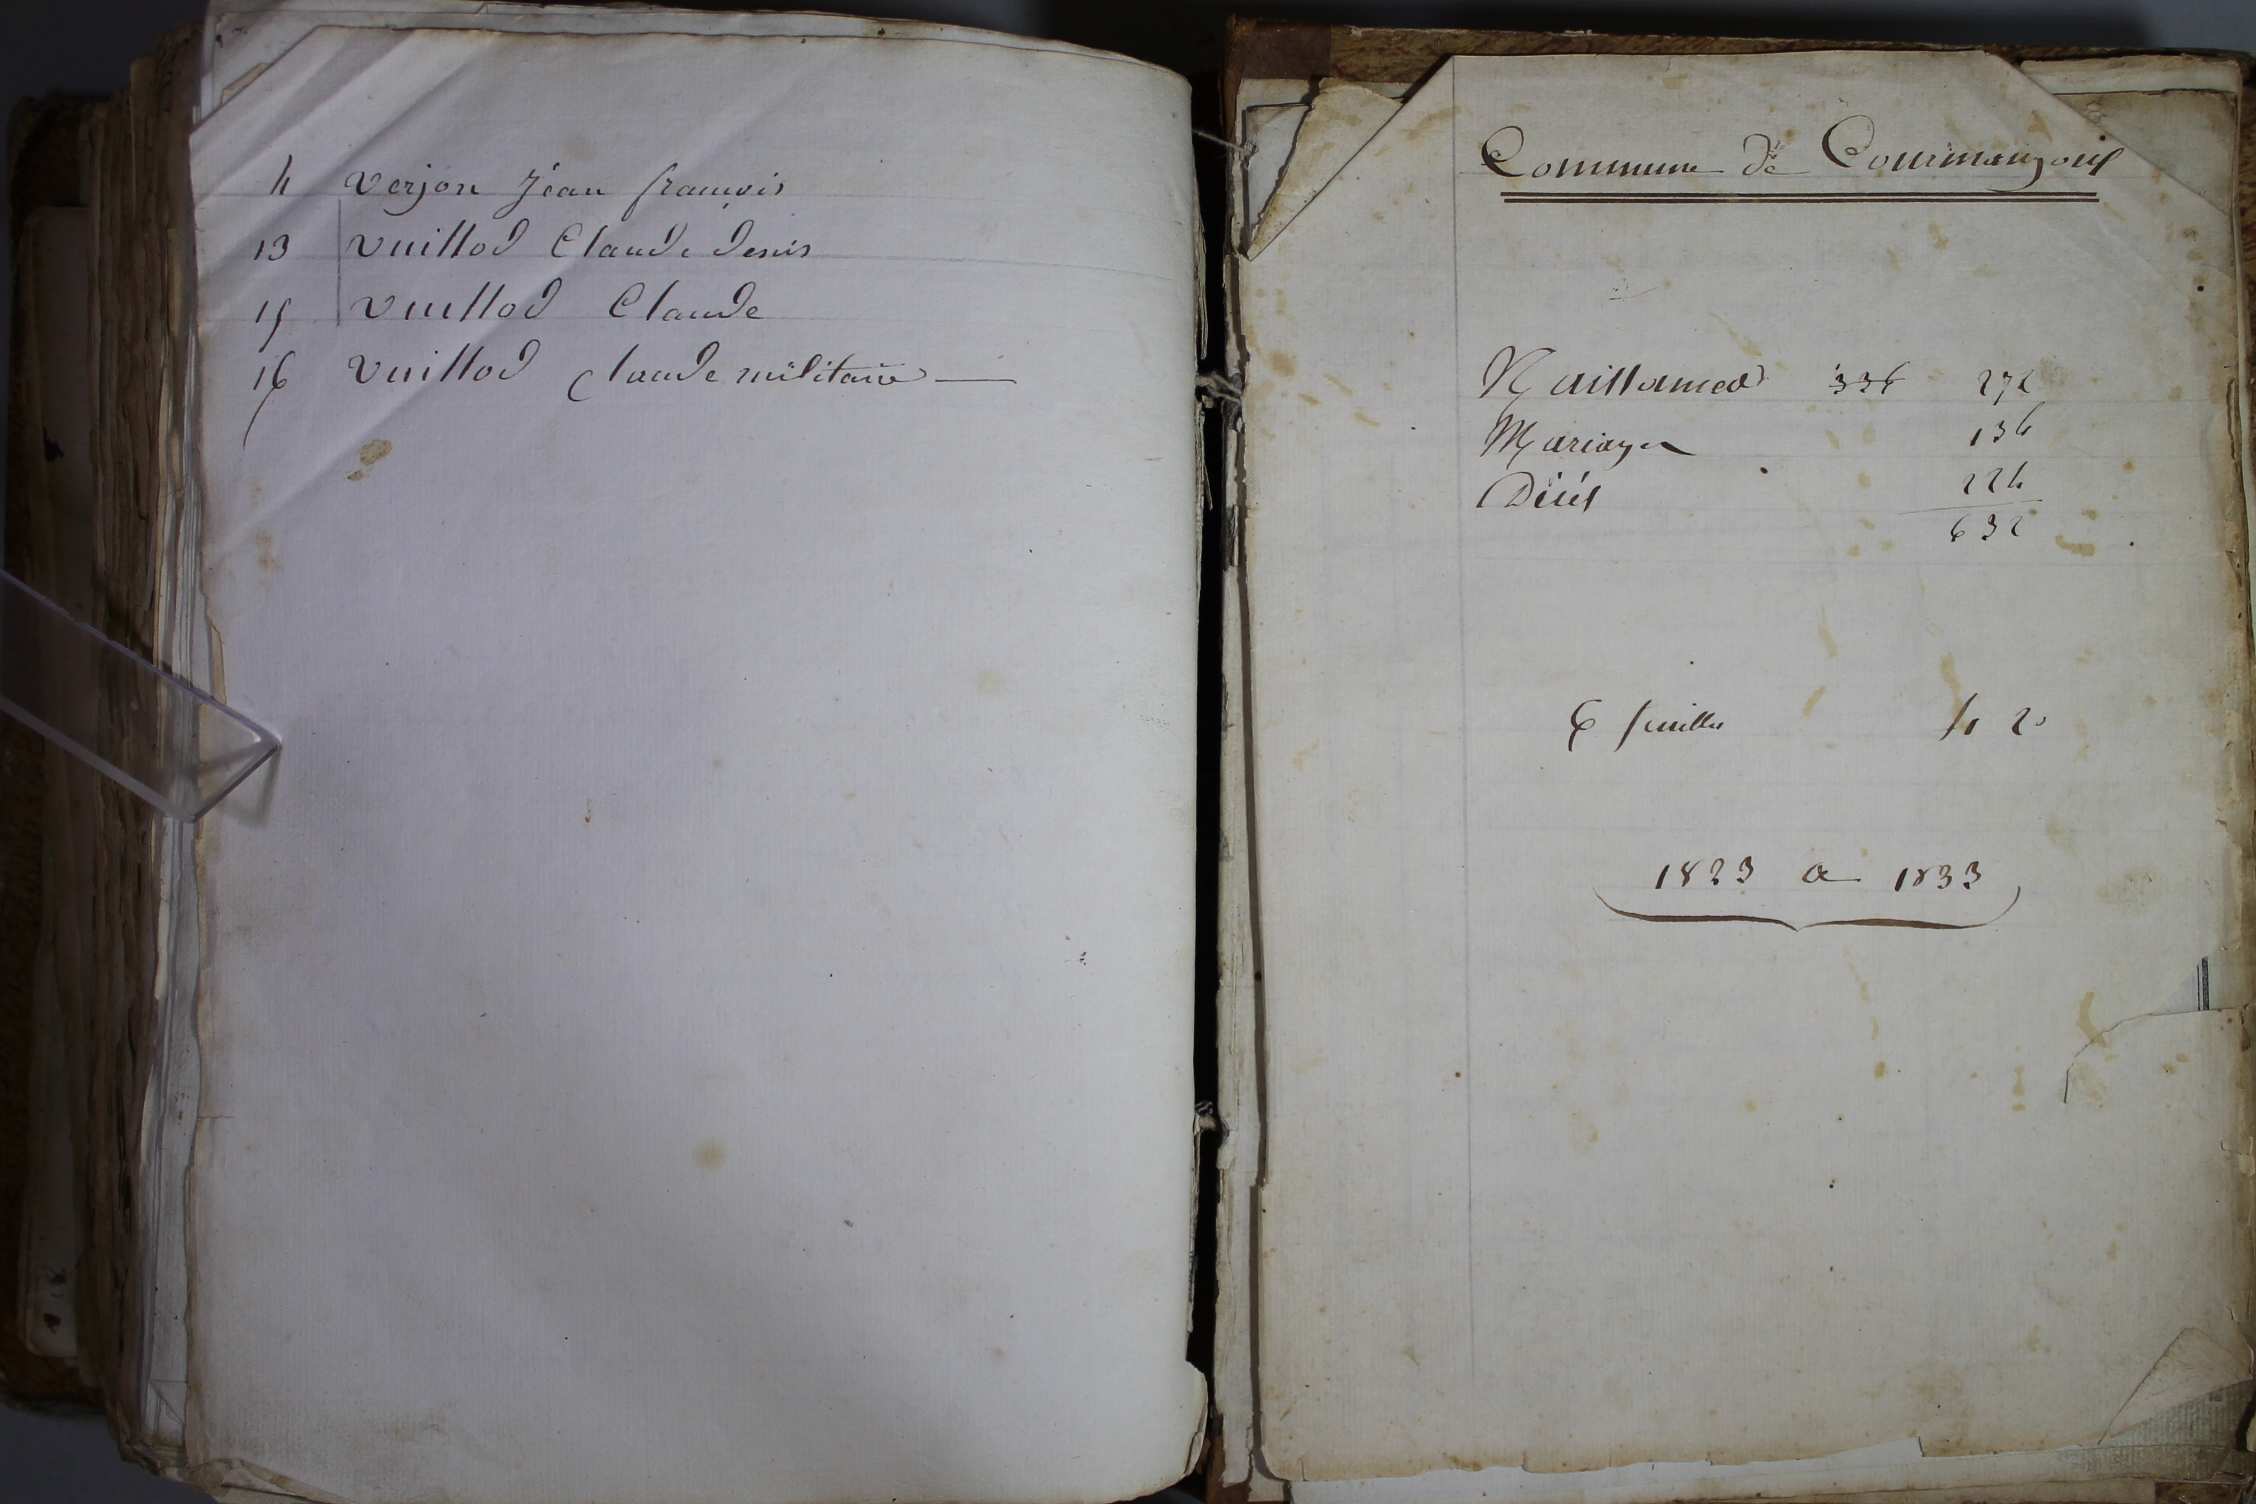 4 Verjon Jéan françois
13 Vuillod Claude denis
15 Vuillod Claude
16 Vuillod Claude militaire
Commune de Courmangoux
Naissances 336 272
Mariages 136
Décés 224
632
6 feuilles
1823 a 1833